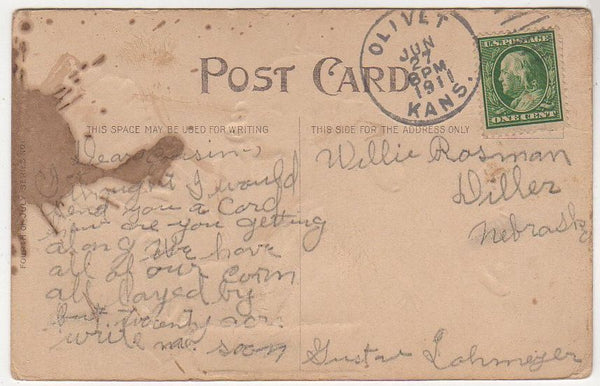 OLIVET
JUN
27
6PM
1911
KANS.
U.S. POSTAGE
ONE CENT
POST CARD
THIS SPACE MAY BE USED FOR WRITING
THIS SIDE FOR THE ADDRESS ONLY
FOURTH OF JULY SERIES NO.
Dear cousin
I thought I would
send you a Card
how are you getting
along We have
all of our Corn
all layed by
but twenty acr.
write me soon
Gustav Lohmeyer
Willie Rosman
Diller
Nebraska